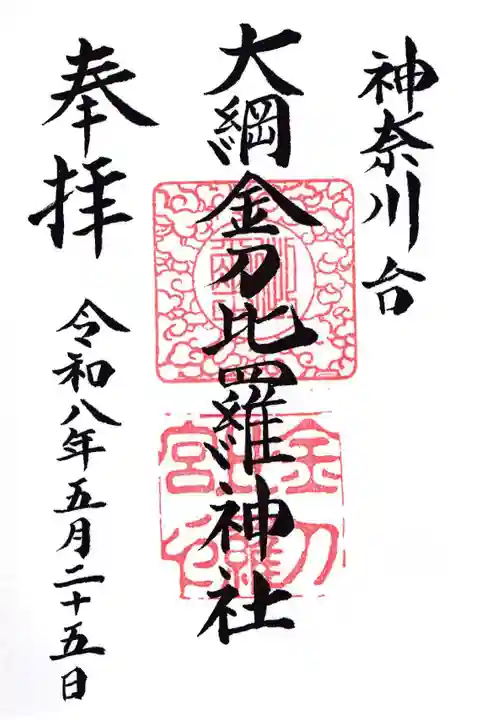 神奈川台
大綱金刀比羅神社
奉拝
令和八年五月二十五日